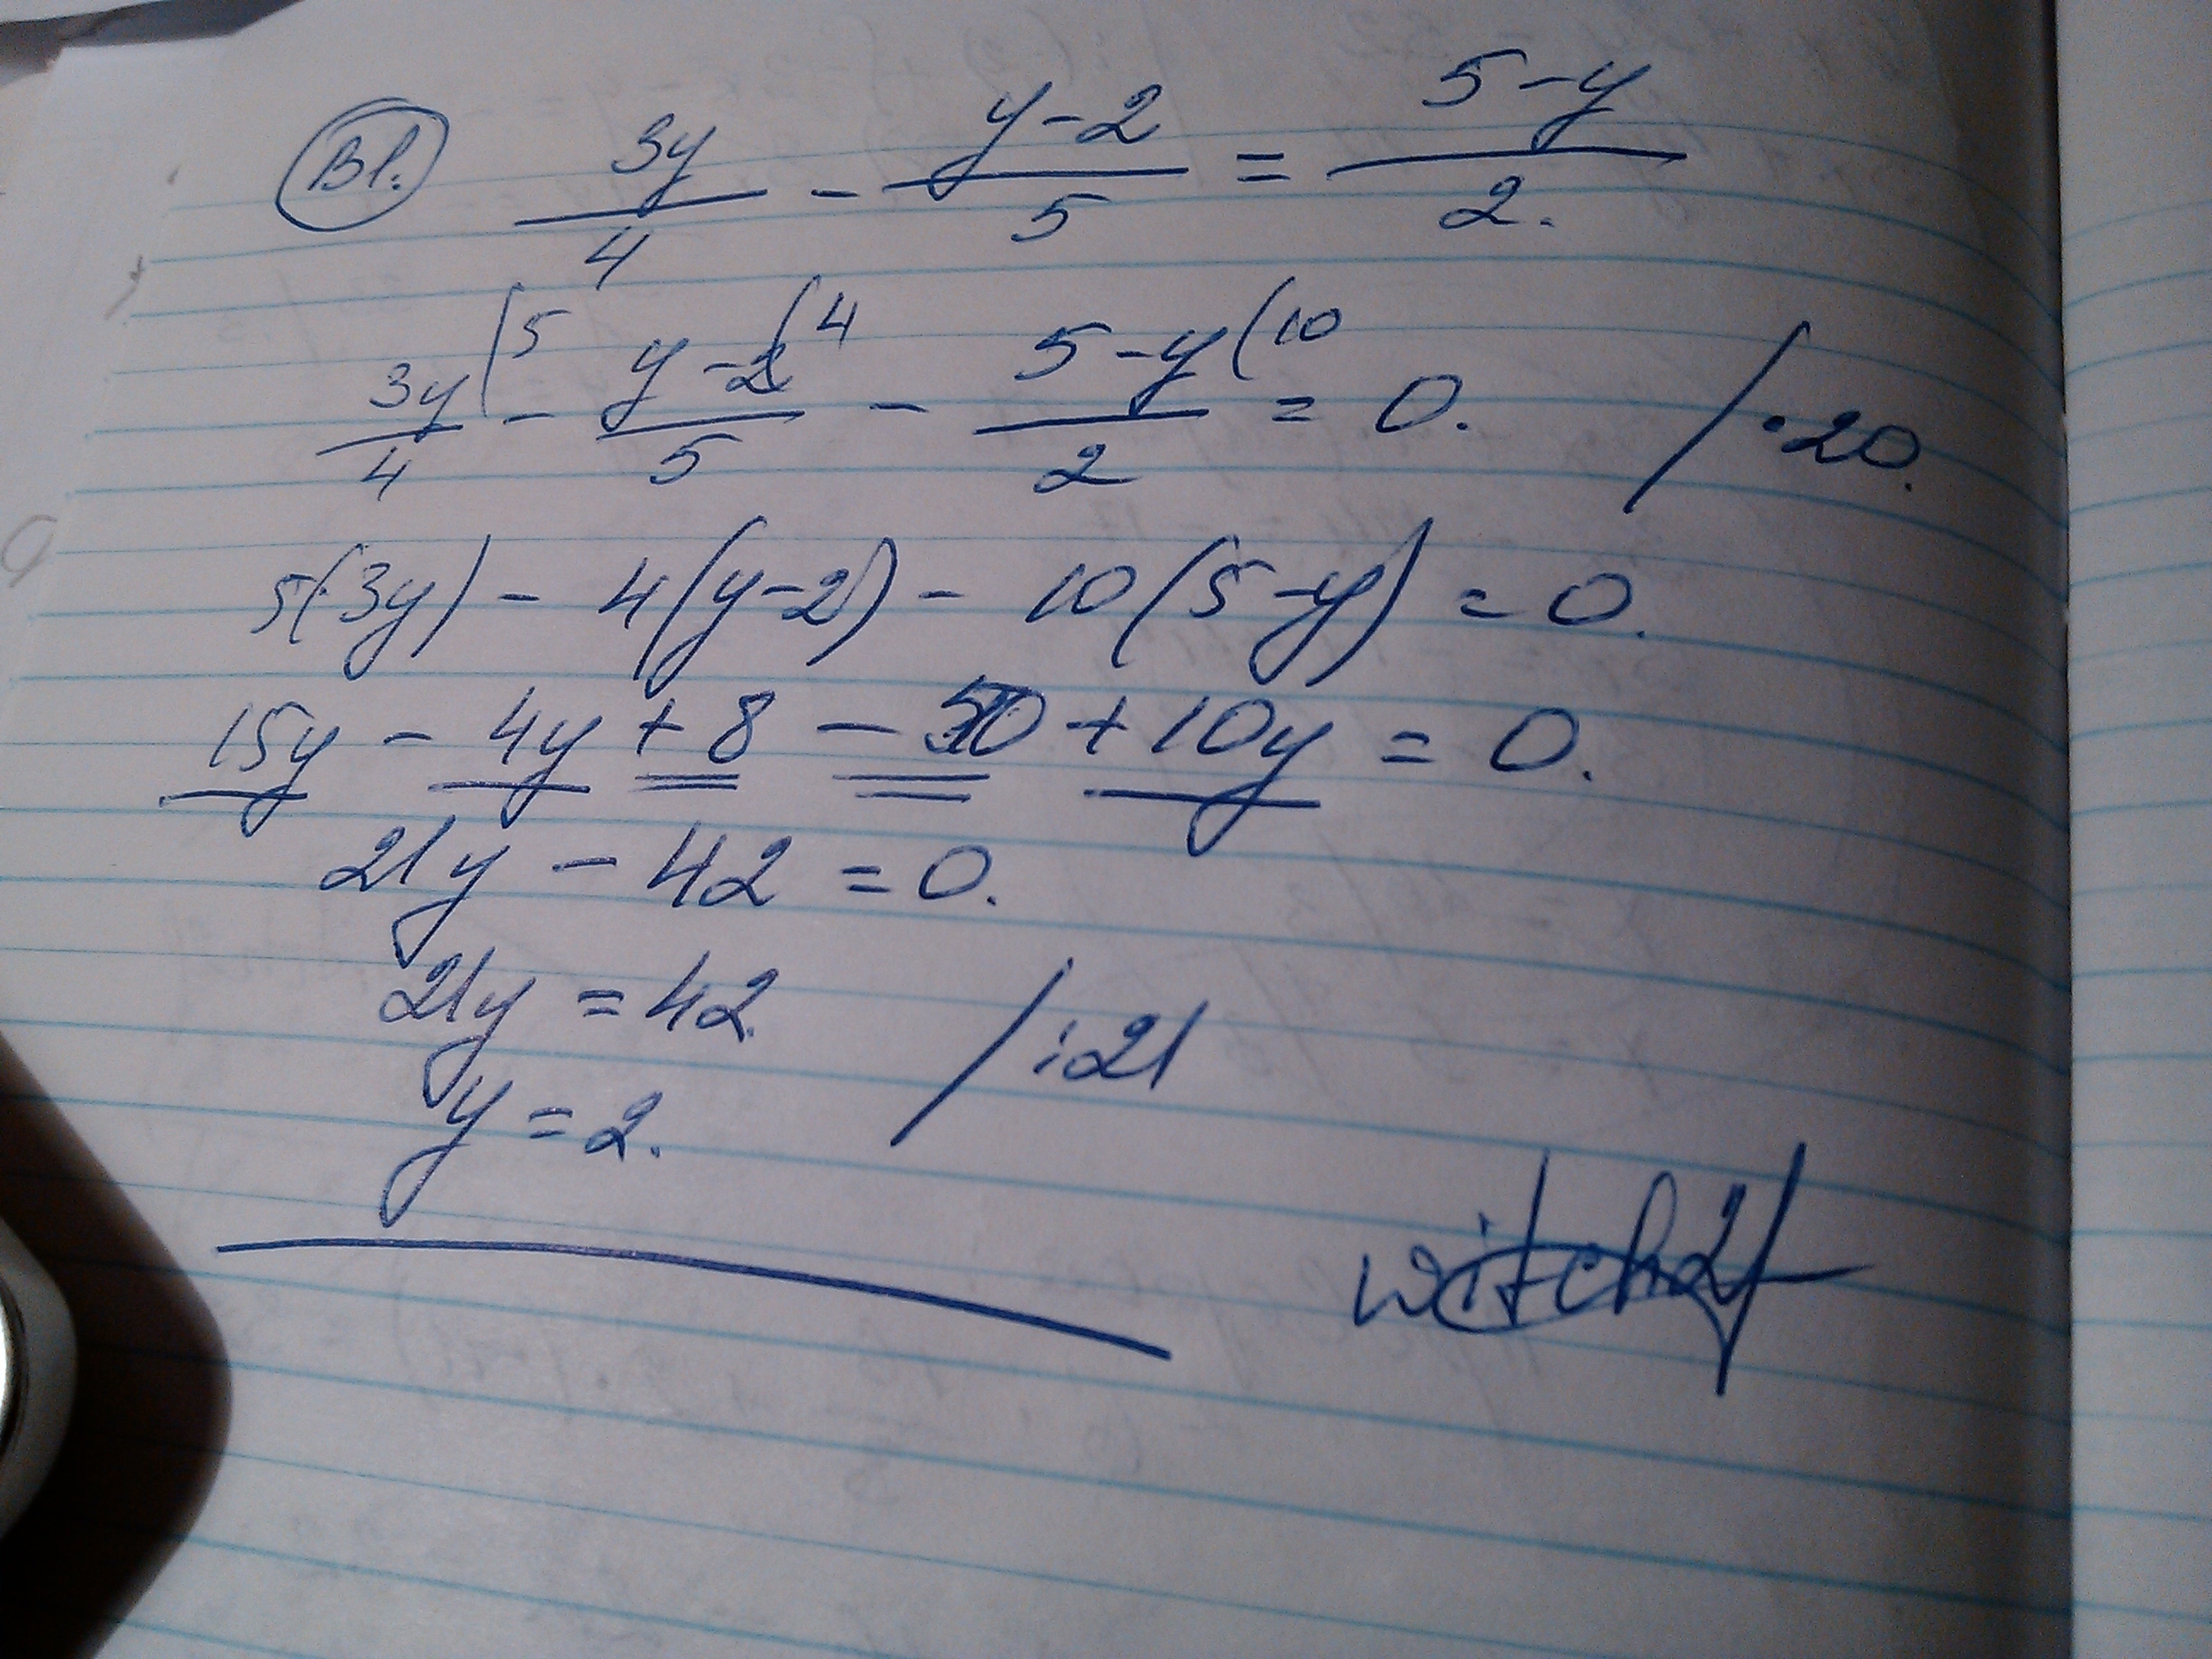 Bl. 3y/4 - y-2/5 = 5-y/2.
3y/4 (5 - y-2/5 (4 - 5-y/2 (10 = 0. / ·20.
5(3y) - 4(y-2) - 10(5-y) = 0.
15y - 4y + 8 - 50 + 10y = 0.
21y - 42 = 0.
21y = 42 / :21
y = 2.